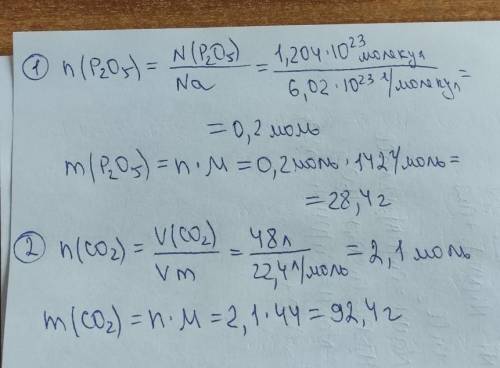 ① n(P₂O₅) = N(P₂O₅)/Na = 1,204·10²³ молекул/6,02·10²³ 1/молекул =
= 0,2 моль
m(P₂O₅) = n·M = 0,2 моль · 142 г/моль =
= 28,4 г
② n(CO₂) = V(CO₂)/Vm = 48л/22,4л/моль = 2,1 моль
m(CO₂) = n·M = 2,1·44 = 92,4 г